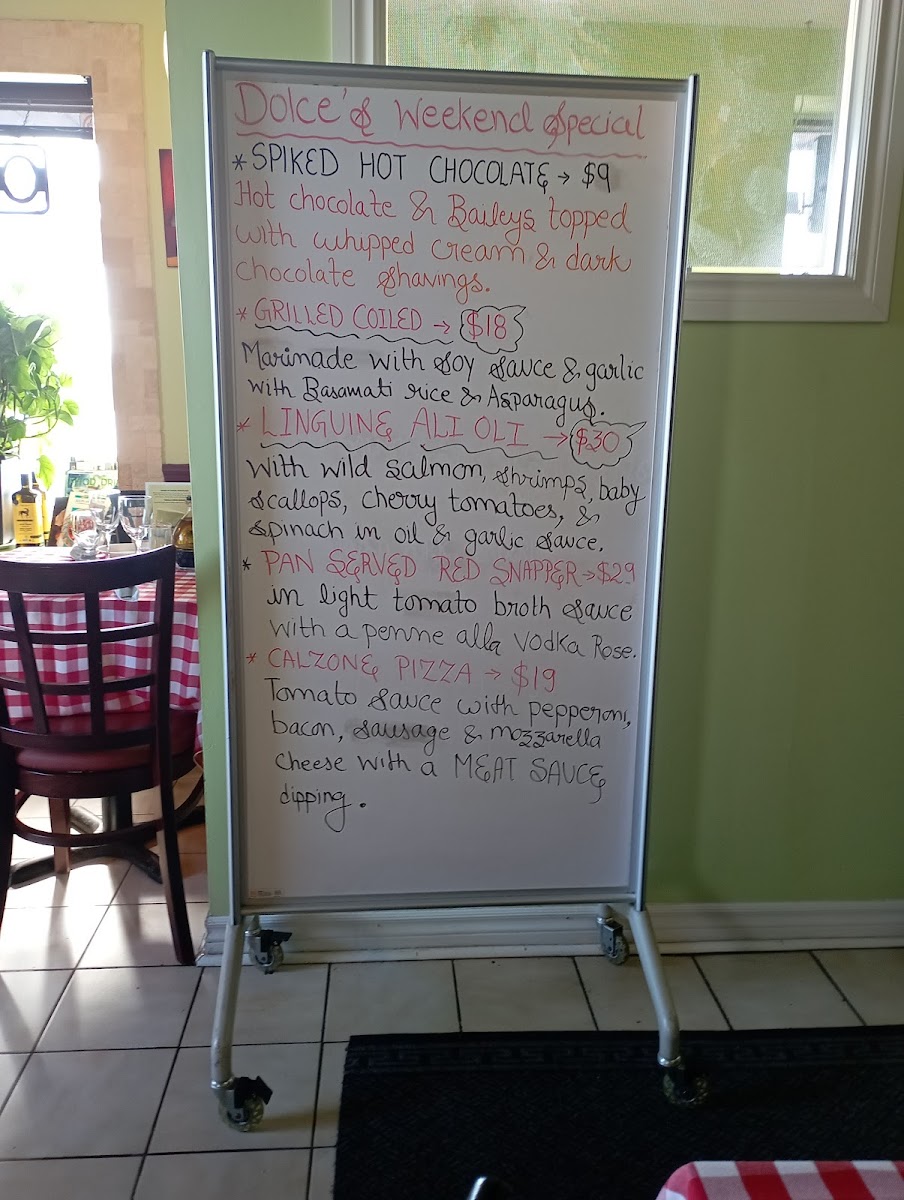 Dolce's Weekend Special
* SPIKED HOT CHOCOLATE → $9
Hot chocolate & Baileys topped
with whipped cream & dark
chocolate shavings.
* GRILLED COILED → $18
Marinade with soy sauce & garlic
with Basamati rice & Asparagus.
* LINGUINE ALI OLI → $30
with wild salmon, shrimps, baby
scallops, cherry tomatoes, &
spinach in oil & garlic sauce.
* PAN SERVED RED SNAPPER → $29
in light tomato broth sauce
with a penne alla vodka Rose.
* CALZONE PIZZA → $19
Tomato sauce with pepperoni,
bacon, sausage & mozzarella
cheese with a MEAT SAUCE
dipping.